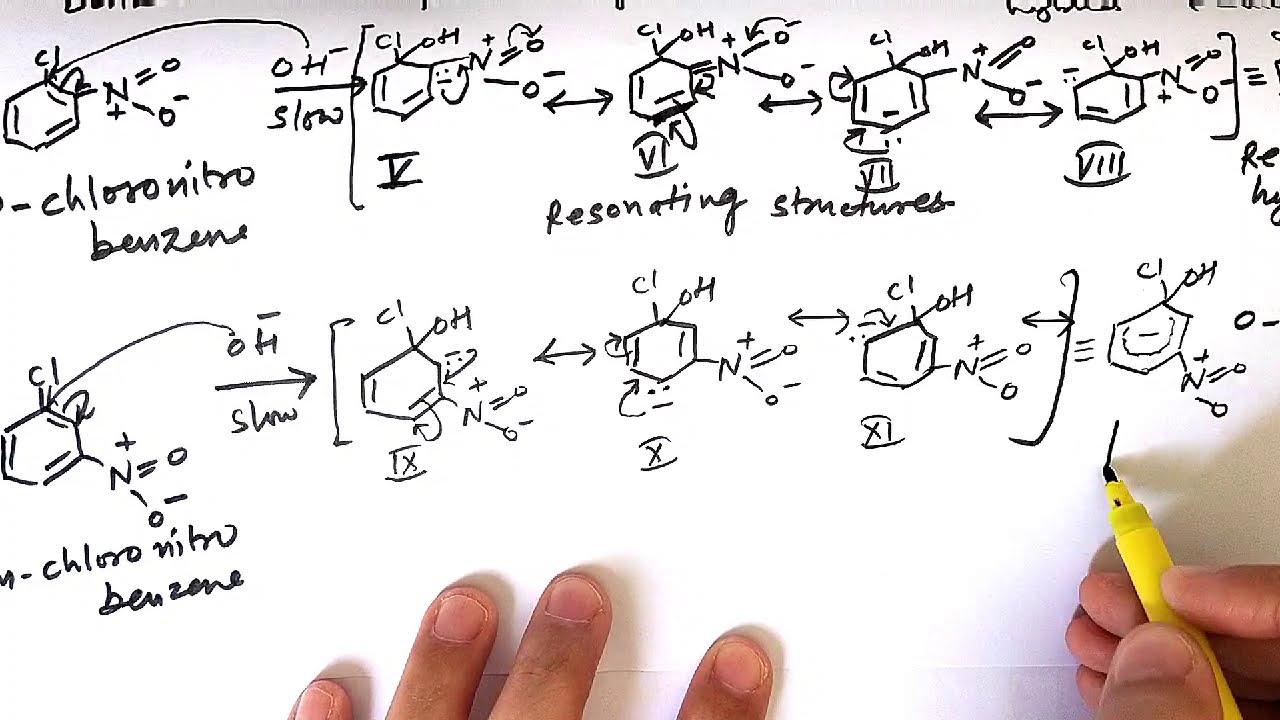 Cl
N+ O O-
OH-
slow
Cl OH N+ O O-
V
Cl OH N+ O- O-
VI
Cl OH N+ O O-
VII
Cl OH N+ O O-
VIII
≡
o-chloronitro
benzene
Resonating structures
Re
hy
Cl
N+ O O-
OH-
slow
Cl OH N+ O O-
IX
Cl OH N+ O O-
X
Cl OH N+ O O
XI
≡
Cl OH N+ O O
-
O-
m-chloronitro
benzene